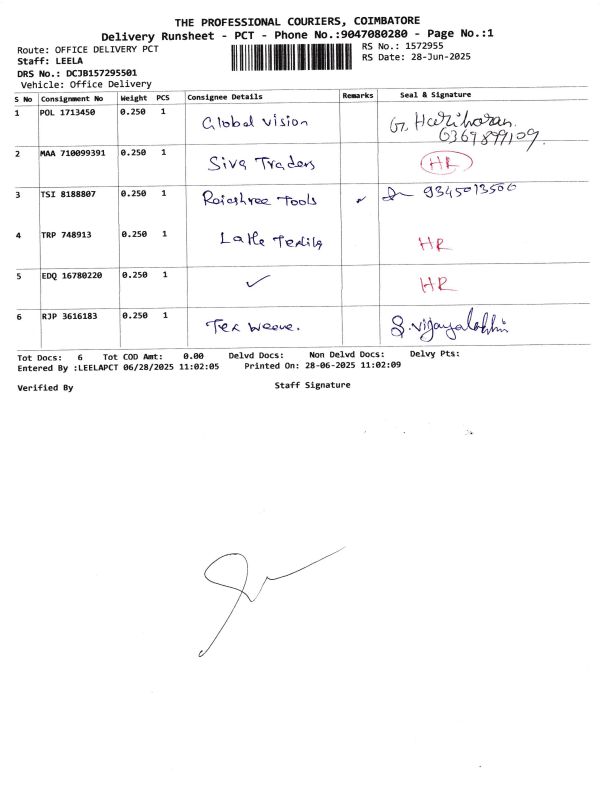 THE PROFESSIONAL COURIERS, COIMBATORE
Delivery Runsheet - PCT - Phone No.:9047080280 - Page No.:1
Route: OFFICE DELIVERY PCT RS No.: 1572955
Staff: LEELA RS Date: 28-Jun-2025
DRS No.: DCJB157295501
Vehicle: Office Delivery
S No Consignment No Weight PCS Consignee Details Remarks Seal & Signature
1 POL 1713450 0.250 1 Global Vision G. Hariharan.
6369899109
2 MAA 710099391 0.250 1 Siva Traders HR
3 TSI 8188807 0.250 1 Rajashree Tools 9345013506
4 TRP 748913 0.250 1 HR
5 EDQ 16780220 0.250 1 ✓ HR
6 RJP 3616183 0.250 1 Tex weave. S. Vijayalakshmi
Tot Docs: 6 Tot COD Amt: 0.00 Delvd Docs: Non Delvd Docs: Delvy Pts:
Entered By :LEELAPCT 06/28/2025 11:02:05 Printed On: 28-06-2025 11:02:09
Verified By Staff Signature